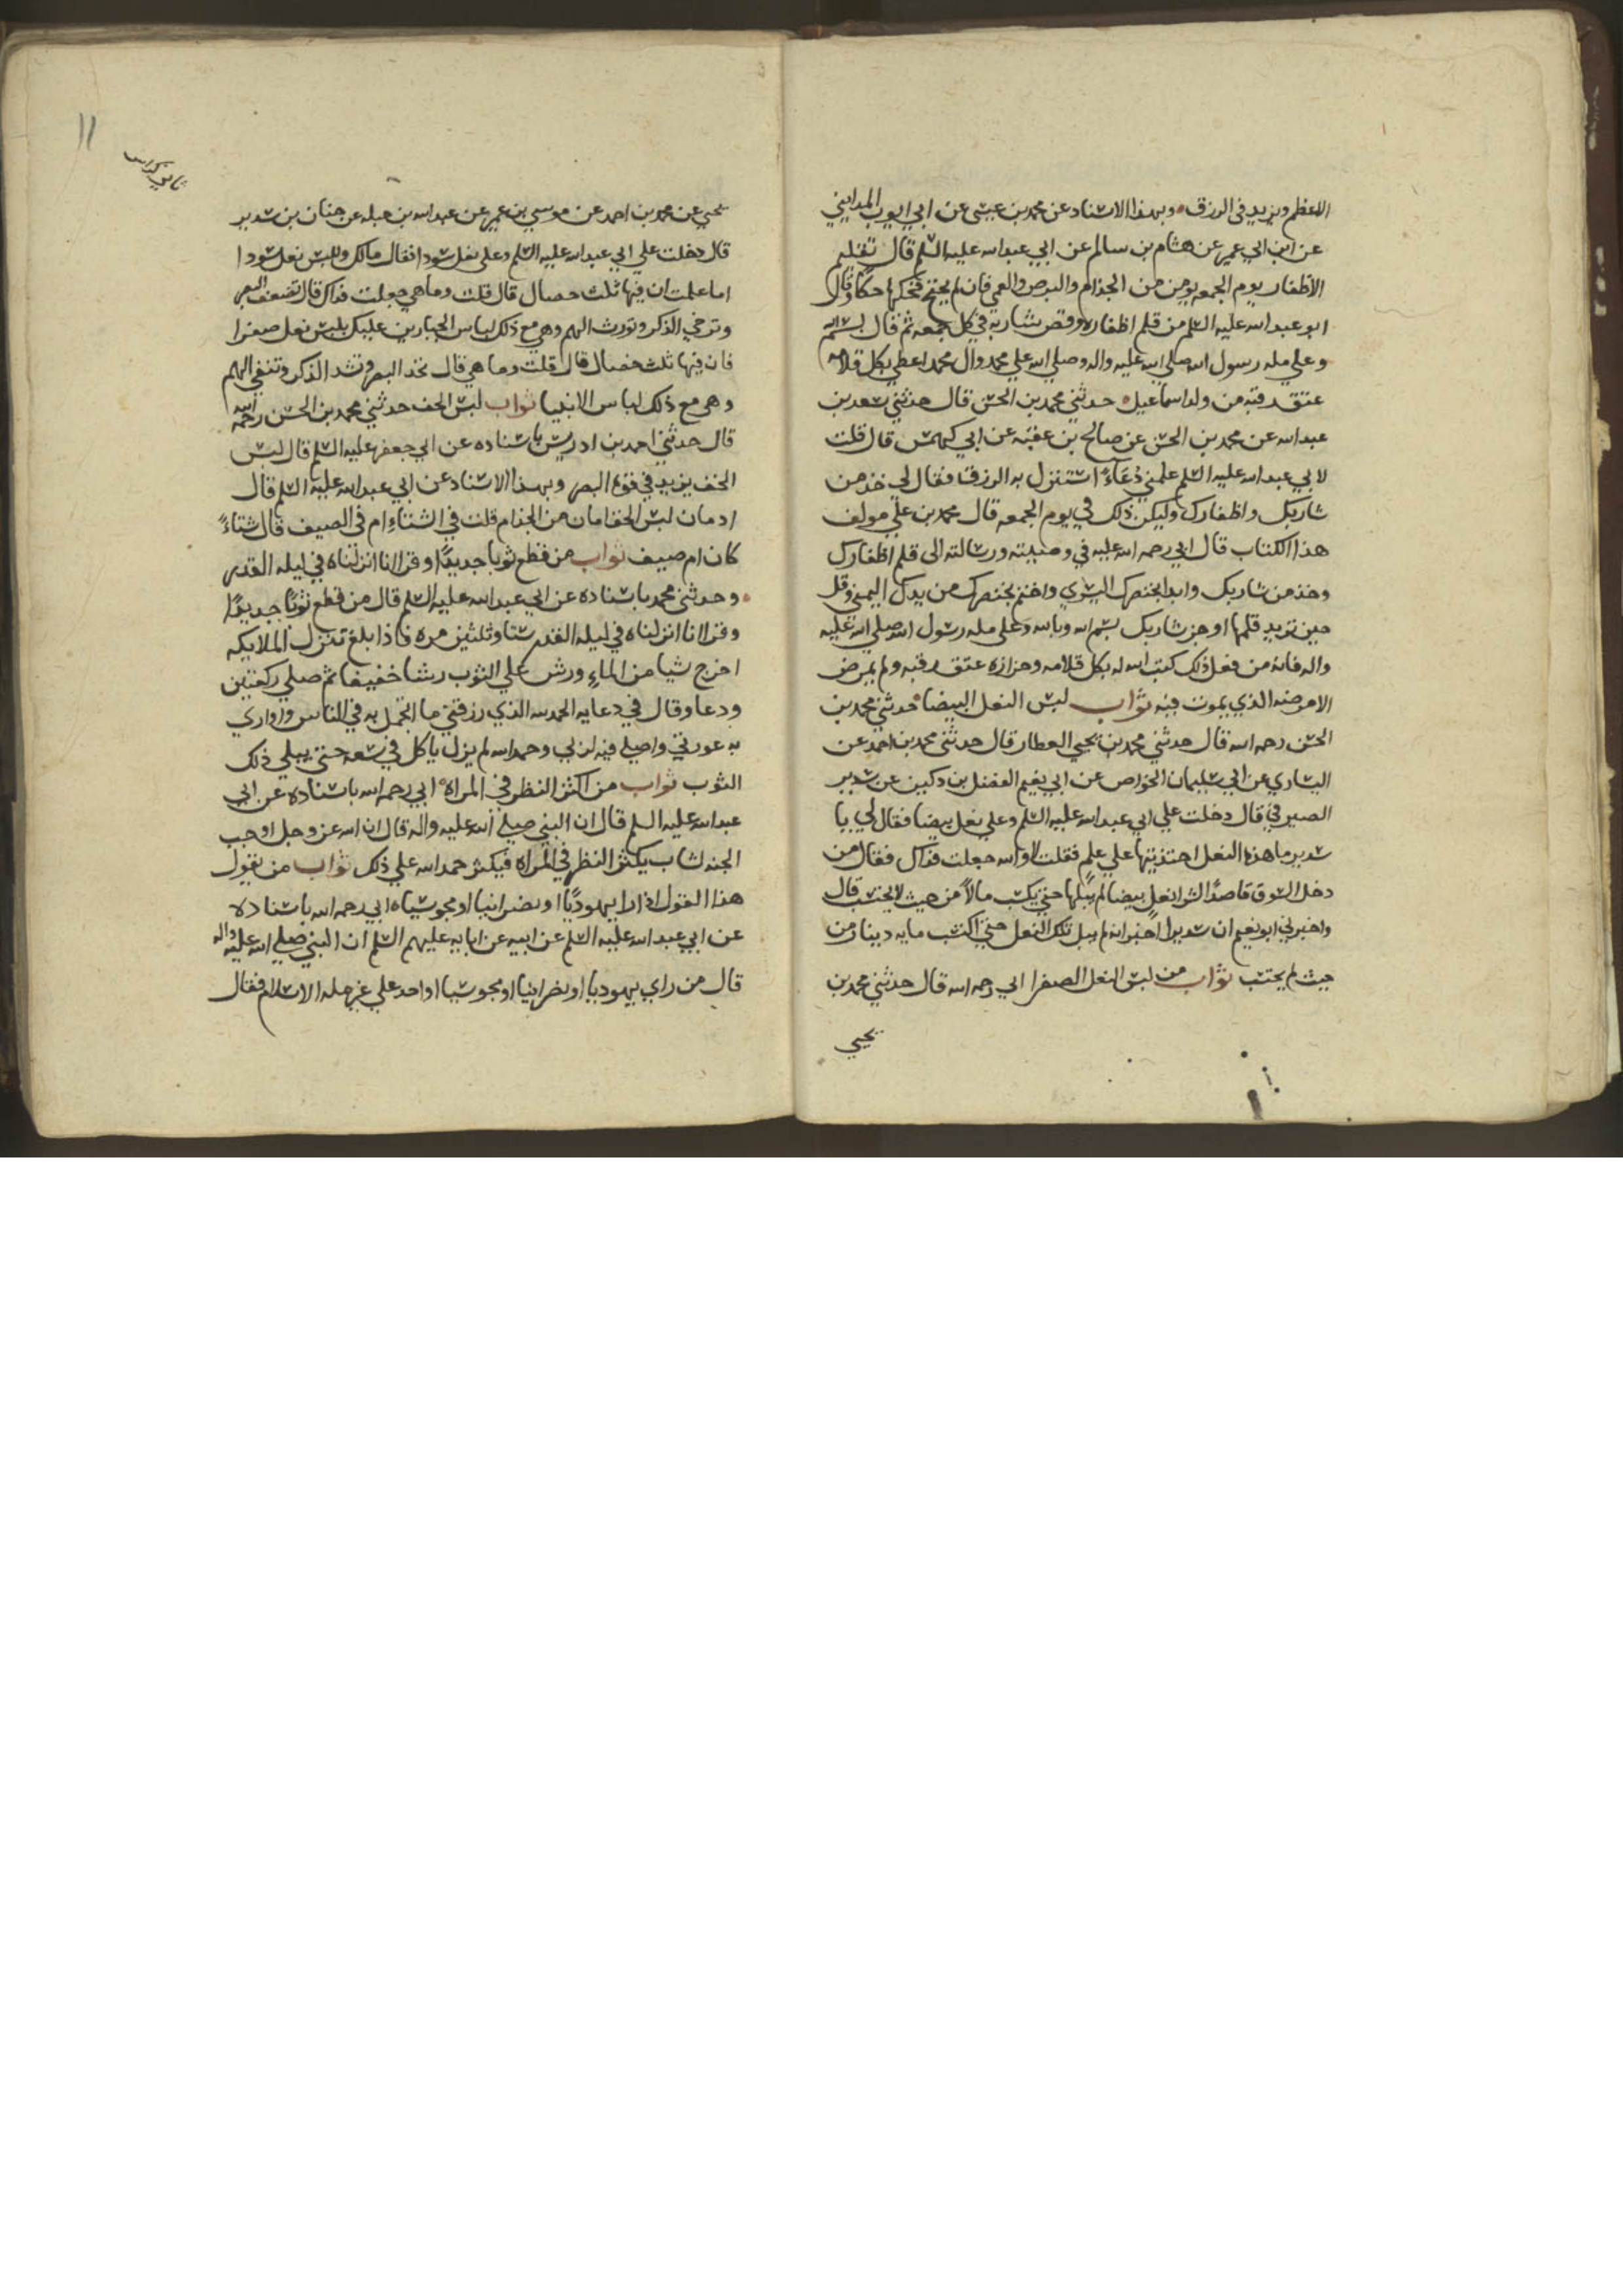 الاعظم ويزيد في الرزق وبهذا الاسناد عن محمد بن عيسى عن ابي ايوب المدايني
عن ابن ابي عمير عن هشام بن سالم عن ابي عبد الله عليه السلم قال تقليم
الاظفار يوم الجمعه يومن من الجذام والبرص والعمي فان لم يحتج فحكها حكا وقال
ابو عبد الله عليه السلم من قلم اظفاره وقص شاربه في كل جمعه ثم قال بسم الله
وعلي مله رسول الله صلي الله عليه واله وصلي الله علي محمد وال محمد اعطي بكل قلامه
عتق رقبه من ولد اسماعيل حدثني محمد بن الحسن قال حدثني سعد بن
عبد الله عن محمد بن الحسن عن صالح بن عقبه عن ابي كهمس قال قلت
لابي عبد الله عليه السلم علمني دعاء استنزل به الرزق فقال لي خذ من
شاربك واظفارك وليكن ذلك في يوم الجمعه قال محمد بن علي مولف
هذا الكتاب قال ابي رحمه الله عليه في وصيته ورسالته الى قلم اظفارك
وخذ من شاربك وابدا بخنصرك اليسري واختم بخنصرك من يدك اليمني وقل
حين تريد قلمها او جز شاربك بسم الله وبالله وعلى مله رسول الله صلي الله عليه
واله فانه من فعل ذلك كتب الله له بكل قلامه وجزازه عتق رقبه ولم يمرض
الا مرضه الذي يموت فيه ثواب لبس النعل البيضا حدثني محمد بن
الحسن رحمه الله قال حدثني محمد بن يحيي العطار قال حدثني محمد بن احمد عن
السياري عن ابي سليمان الخواص عن ابي نعيم الفضل بن دكين عن سدير
الصيرفي قال دخلت علي ابي عبد الله عليه السلم وعلي نعل بيضا فقال لي يا
سدير ما هذه النعل احتذيتها علي علم فقلت لا والله جعلت فداك فقال من
دخل السوق قاصدا لشرا نعل بيضا لم يبلها حتي يكسب مالا من حيث لا يحتسب قال
واخبرني ابو نعيم ان سديرا اخبر انه لم يبل تلك النعل حتي اكتسب مايه دينار من
حيث لم يحتسب ثواب من لبس النعل الصفرا ابي رحمه الله قال حدثني محمد بن
يحيي
11
يحيي عن محمد بن احمد عن موسي بن عمير عن عبد الله بن جبله عن حنان بن سدير
قال دخلت علي ابي عبد الله عليه السلم وعلي نعل سودا فقال مالك ولبس نعل سودا
اما علمت ان فيها ثلث خصال قال قلت وما هي جعلت فداك قال تضعف البصر
وترخي الذكر وتورث الهم وهي مع ذلك لباس الجبارين عليك بلبس نعل صفرا
فان فيها ثلث خصال قال قلت وما هي قال تحد البصر وتشد الذكر وتنفي الهم
وهي مع ذلك لباس الانبيا ثواب لبس الخف حدثني محمد بن الحسن رحمه الله
قال حدثني احمد بن ادريس باسناده عن ابي جعفر عليه السلم قال لبس
الخف يزيد في قوه البصر وبهذا الاسناد عن ابي عبد الله عليه السلم قال
ادمان لبس الخف امان من الجذام قلت في الشتاء ام في الصيف قال شتاء
كان ام صيف ثواب من قطع ثوبا جديدا وقرا انا انزلناه في ليله القدر
وحدثني محمد باسناده عن ابي عبد الله عليه السلم قال من قطع ثوبا جديدا
وقرا انا انزلناه في ليله القدر ستا وثلثين مره فاذا بلغ تنزل الملايكه
اخرج شيا من الماء ورش علي الثوب رشا خفيفا ثم صلي ركعتين
ودعا وقال في دعايه الحمد لله الذي رزقني ما اتجمل به في الناس واواري
به عورتي واصلي فيه لربي وحمد الله لم يزل ياكل في سعه حتي يبلي ذلك
الثوب ثواب من اكثر النظر في المراه ابي رحمه الله باسناده عن ابي
عبد الله عليه السلم قال ان النبي صلي الله عليه واله قال ان الله عز وجل اوجب
الجنه لشاب يكثر النظر في المراه فيكثر حمد الله علي ذلك ثواب من يقول
هذا القول اذا را يهوديا او نصرانيا او مجوسيا ابي رحمه الله باسناده
عن ابي عبد الله عليه السلم عن ابيه عن ابايه عليهم السلم ان النبي صلي الله عليه واله
قال من راي يهوديا او نصرانيا او مجوسيا او احد علي غير مله الاسلام فقال